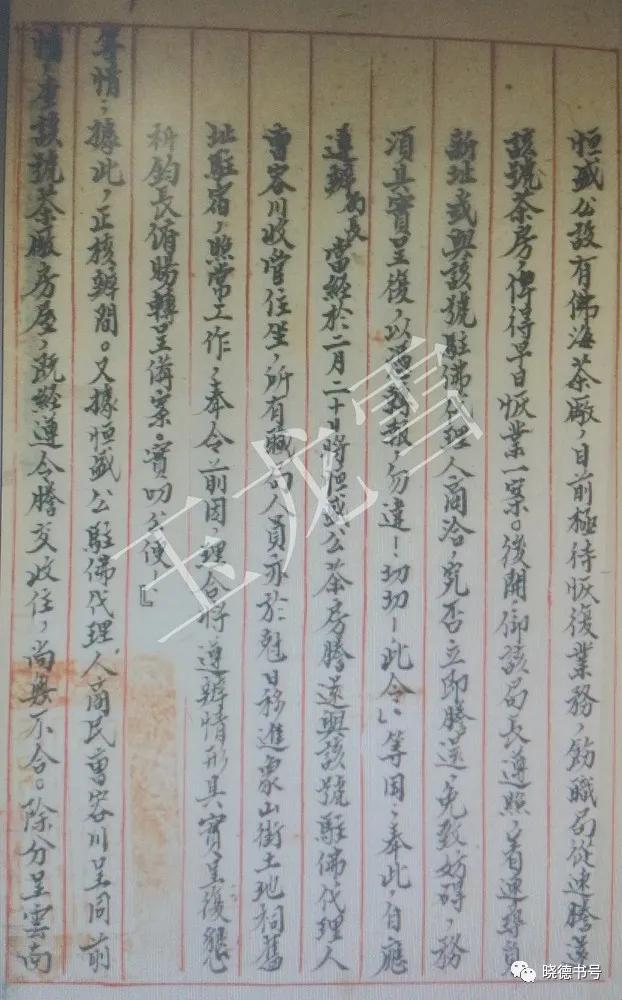 恒盛公設有佛海茶廠，目前極待恢復業務，飭職局從速騰還
該號茶房，俾得早日恢業一案。後開：御該局長遵照，着速尋覓
新址或與該號駐佛代理人商洽，究否立即騰還，免致妨碍，務
須具實呈復，以憑轉報，勿違！切切！此令」等因；奉此，自應
遵辦，局長當經於二月二十日將恒盛公茶房騰還與該號駐佛代理人
曹容川收管住坐，所有職局人員亦於尅日移進象山街土地祠舊
址駐宿，照常工作，奉令前因，理合將遵辦情形具實呈復懇
祈鈞長俯賜轉呈備案。實叨公便。』
等情；據此，正核辦間。又據恒盛公駐佛代理人商民曹容川呈同前
情；查該號茶廠房屋，既經遵令騰交收住，尚無不合。除分呈雲南
玉龙雪
晓德书号